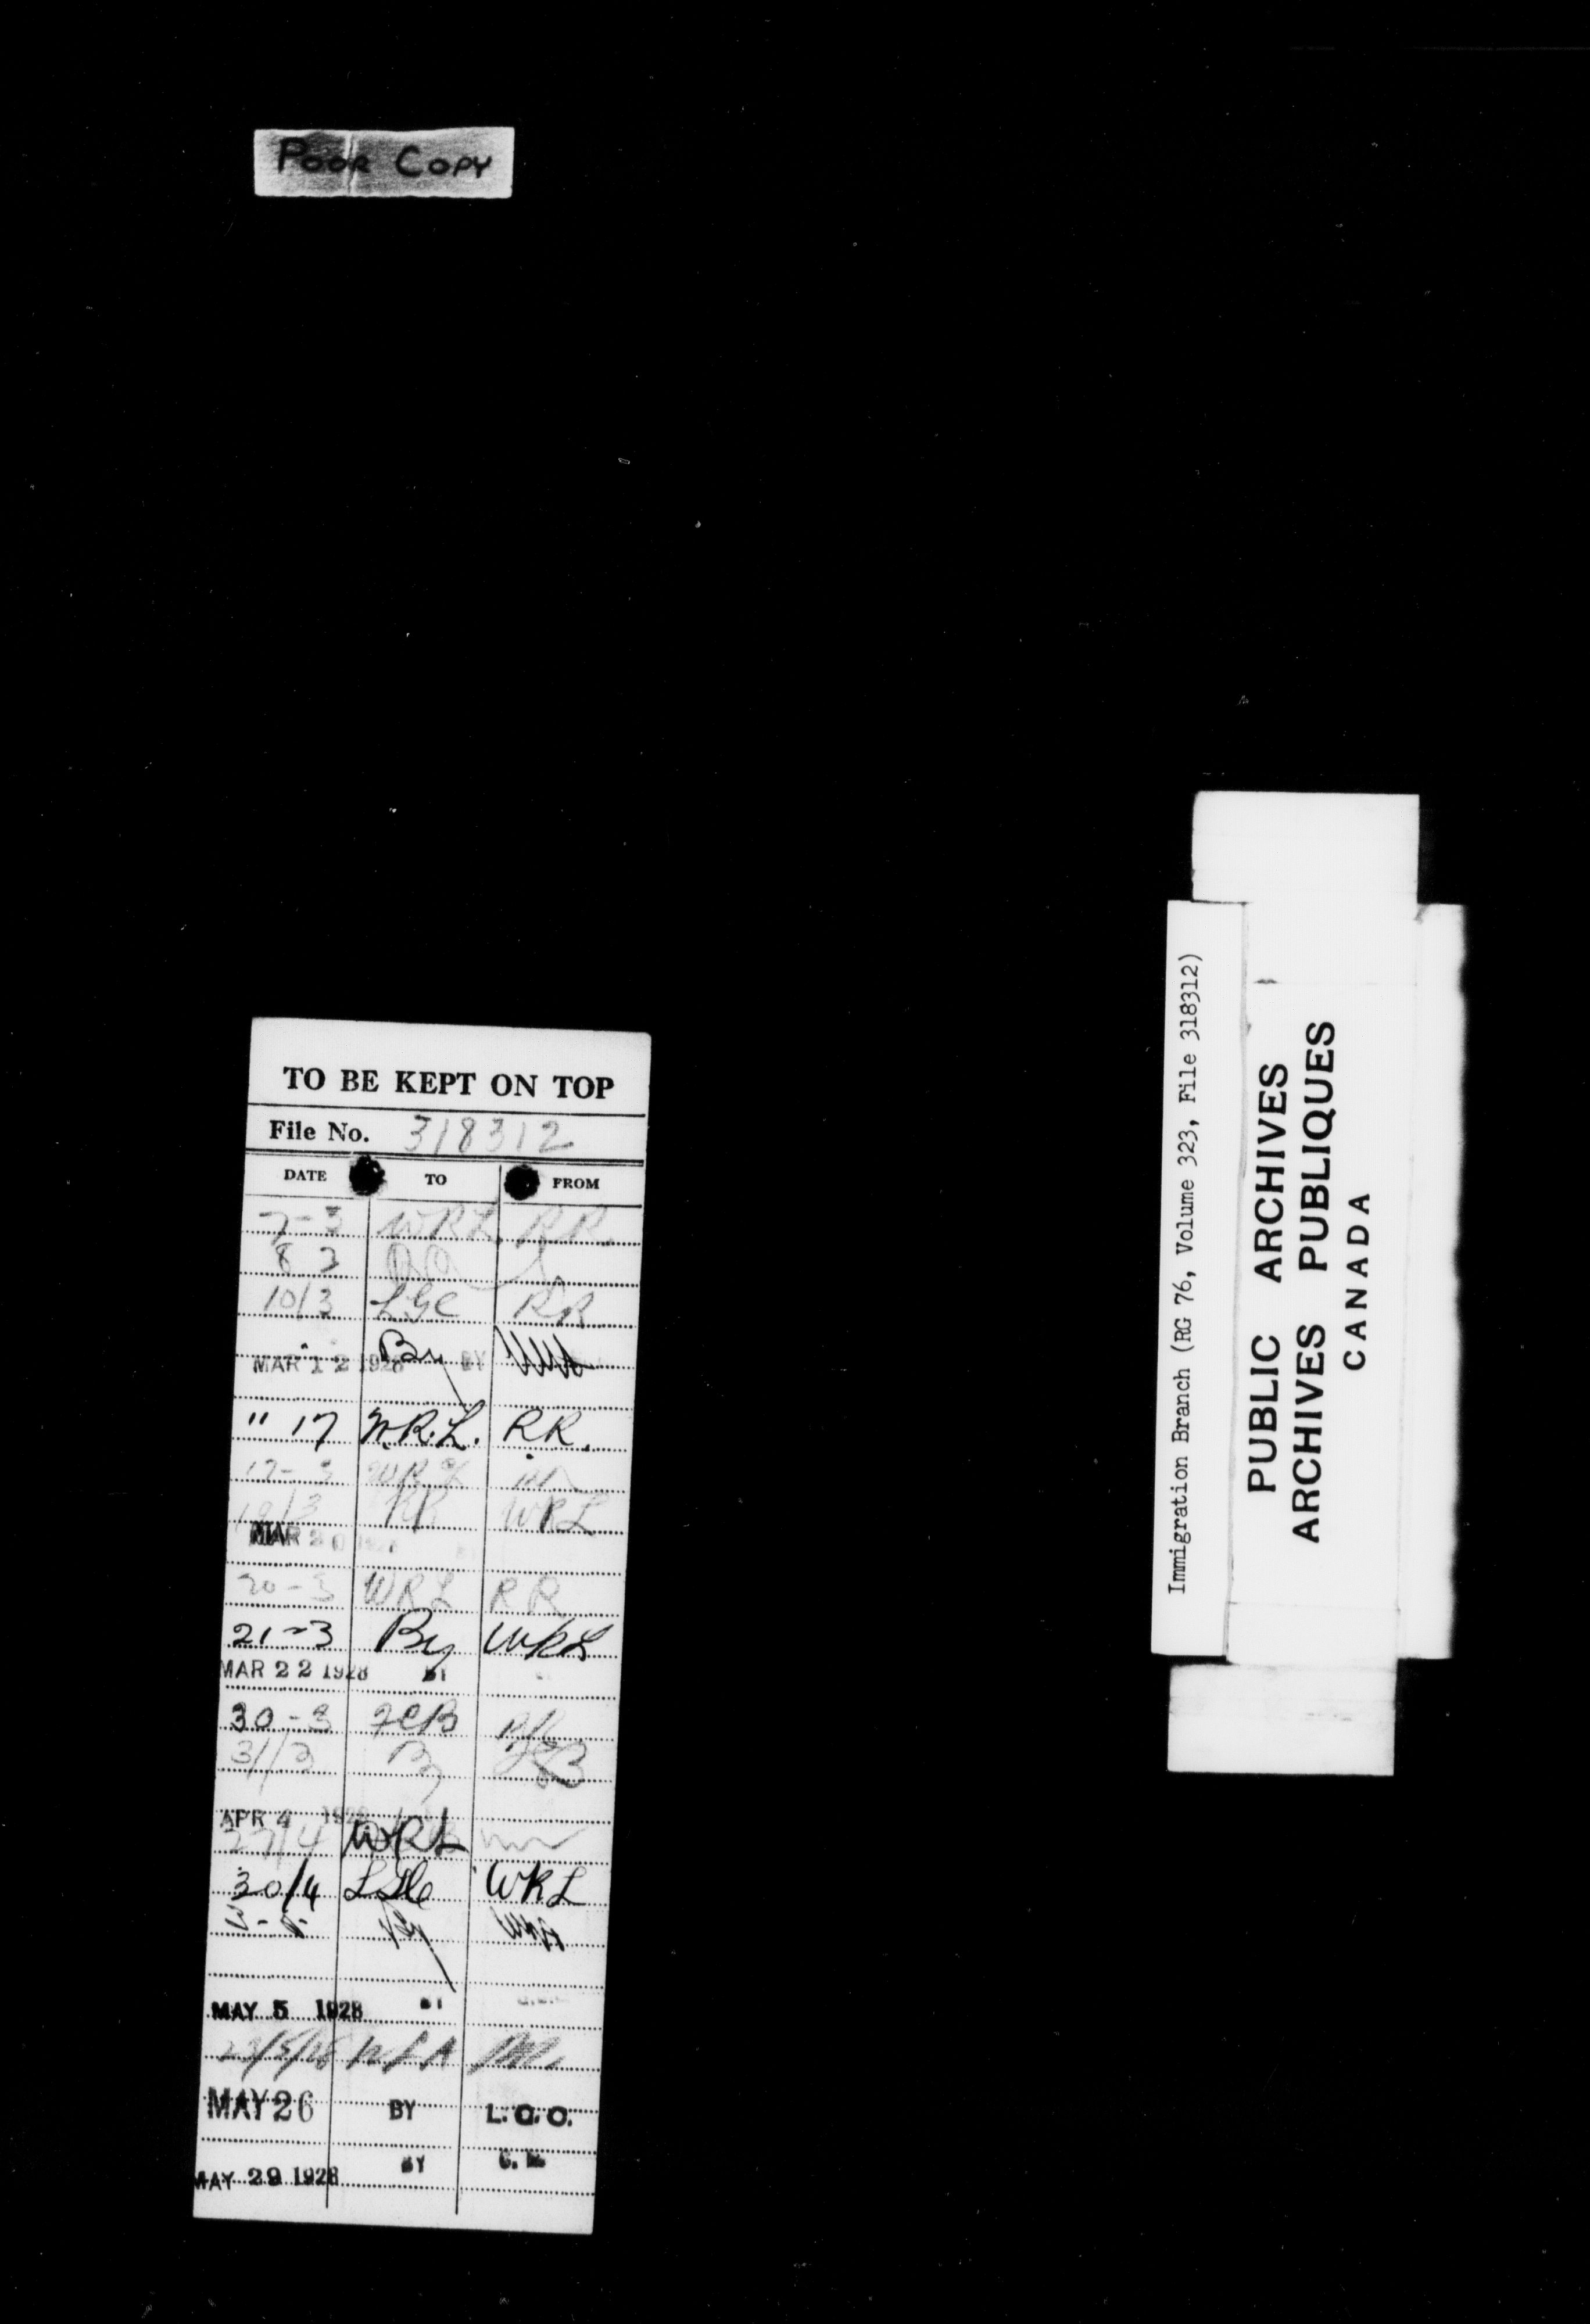 POOR COPY
TO BE KEPT ON TOP
File No. 318312
DATE TO FROM
7-3 WRL RR.
8 3
10/3 LGC RR
MAR 12 1928 By BY
" 17 W.R.L. RR.
17-3 WRL
19/3 RR WRL
MAR 20
20-3 WRL RR
21-3 By WRL
MAR 22 1928 BY
30-3 FCB
31/3
APR 4 1928
27/4 WRL
30/4 WRL
MAY 5 1928
23/5/28
MAY 26 BY L.C.C.
MAY 29 1928 BY
Immigration Branch (RG 76, Volume 323, File 318312)
PUBLIC ARCHIVES
ARCHIVES PUBLIQUES
CANADA